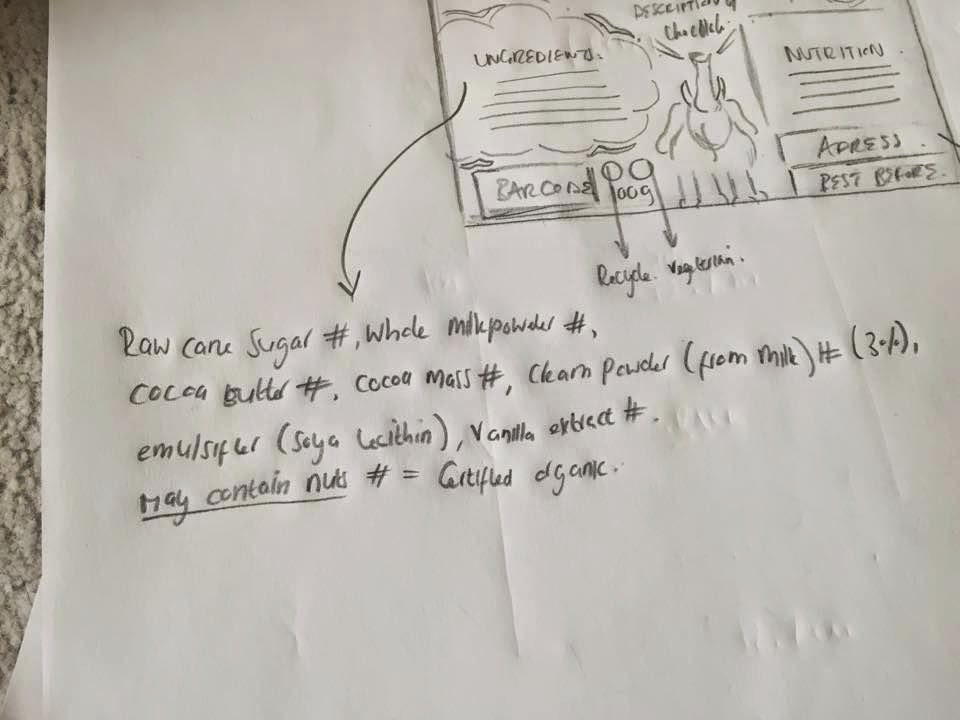 DESCRIPTION of
Chocolate.
UNGREDIENTS.
NUTRITION
ADRESS
BARCODE
100g
BEST BEFORE.
Recycle. Vegetarian.
Raw cane Sugar #, whole milkpowder #,
cocoa butter #, cocoa mass #, Cream powder (from milk) # (3%),
emulsifier (Soya lecithin), Vanilla extract #.
May contain nuts # = Certified organic.